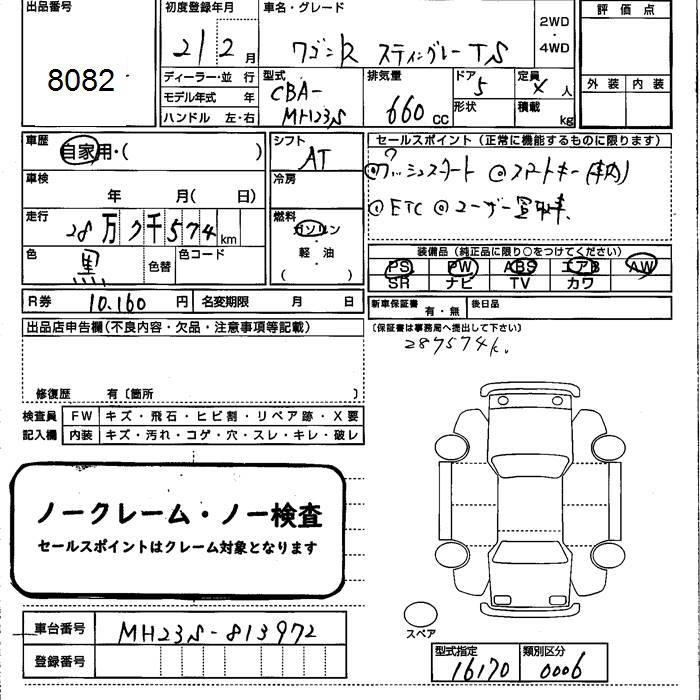 出品番号
8082
初度登録年月
21 2 月
車名・グレード
ワゴンR スティングレーTS
2WD
・
4WD
評価点
外装 内装
ディーラー・並行
モデル年式 年
ハンドル 左・右
型式
CBA-
MH23S
排気量
660 cc
ドア
5
形状
定員
4 人
積載
kg
車歴
自家用・( )
シフト
AT
セールスポイント(正常に機能するものに限ります)
◎プッシュスタート ◎スマートキー(車内)
◎ETC ◎ユーザー買取車
車検
年 月( 日)
冷房
走行
28万7千574km
燃料
ガソリン
・
軽・油
( )
色
黒
色替
色コード
装備品(純正品に限り○をつけてください)
PS PW ABS エアB AW
SR ナビ TV カワ
R券 10,160 円 名変期限 月 日
新車保証書 有・無 後日品
(保証書は事務局へ提出して下さい)
287574k.
出品店申告欄(不良内容・欠品・注意事項等記載)
修復歴 有〔箇所 〕
検査員 FW キズ・飛石・ヒビ割・リペア跡・X要
記入欄 内装 キズ・汚れ・コゲ・穴・スレ・キレ・破レ
ノークレーム・ノー検査
セールスポイントはクレーム対象となります
スペア
車台番号 MH23S-813972
登録番号
型式指定 類別区分
16170 0006